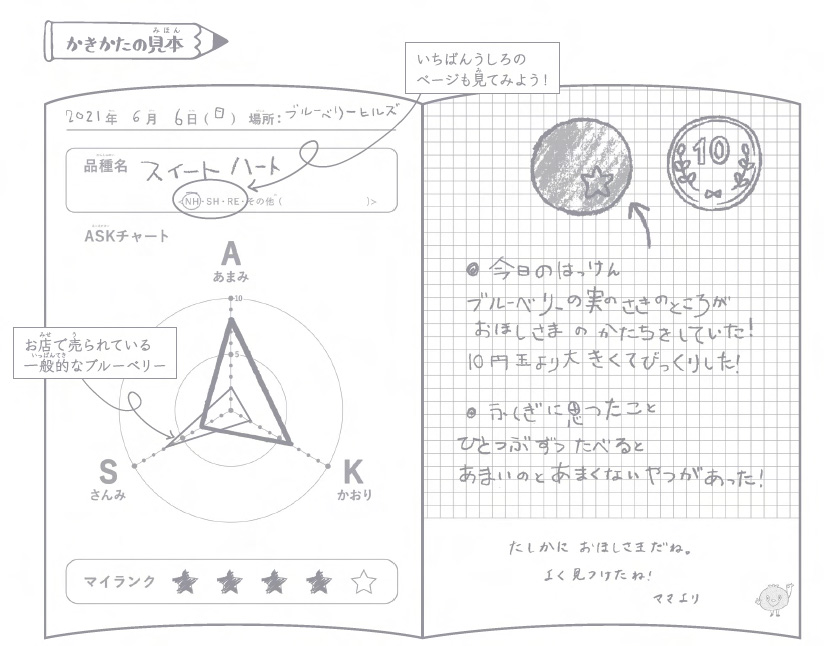 かきかたの見本
みほん
いちばんうしろの
ページも見てみよう!
2021年 6月 6日(日) 場所:ブルーベリーヒルズ
品種名 スイートハート
<NH・SH・RE・その他( )>
ASKチャート
A
あまみ
10
5
お店で売られている
一般的なブルーベリー
S
さんみ
K
かおり
マイランク ★★★★☆
10
●今日のはっけん
ブルーベリーの実のさきのところが
おほしさまのかたちをしていた!
10円玉より大きくてびっくりした!
●ふしぎに思ったこと
ひとつぶずつたべると
あまいのとあまくないやつがあった!
たしかにおほしさまだね。
よく見つけたね!
ママより